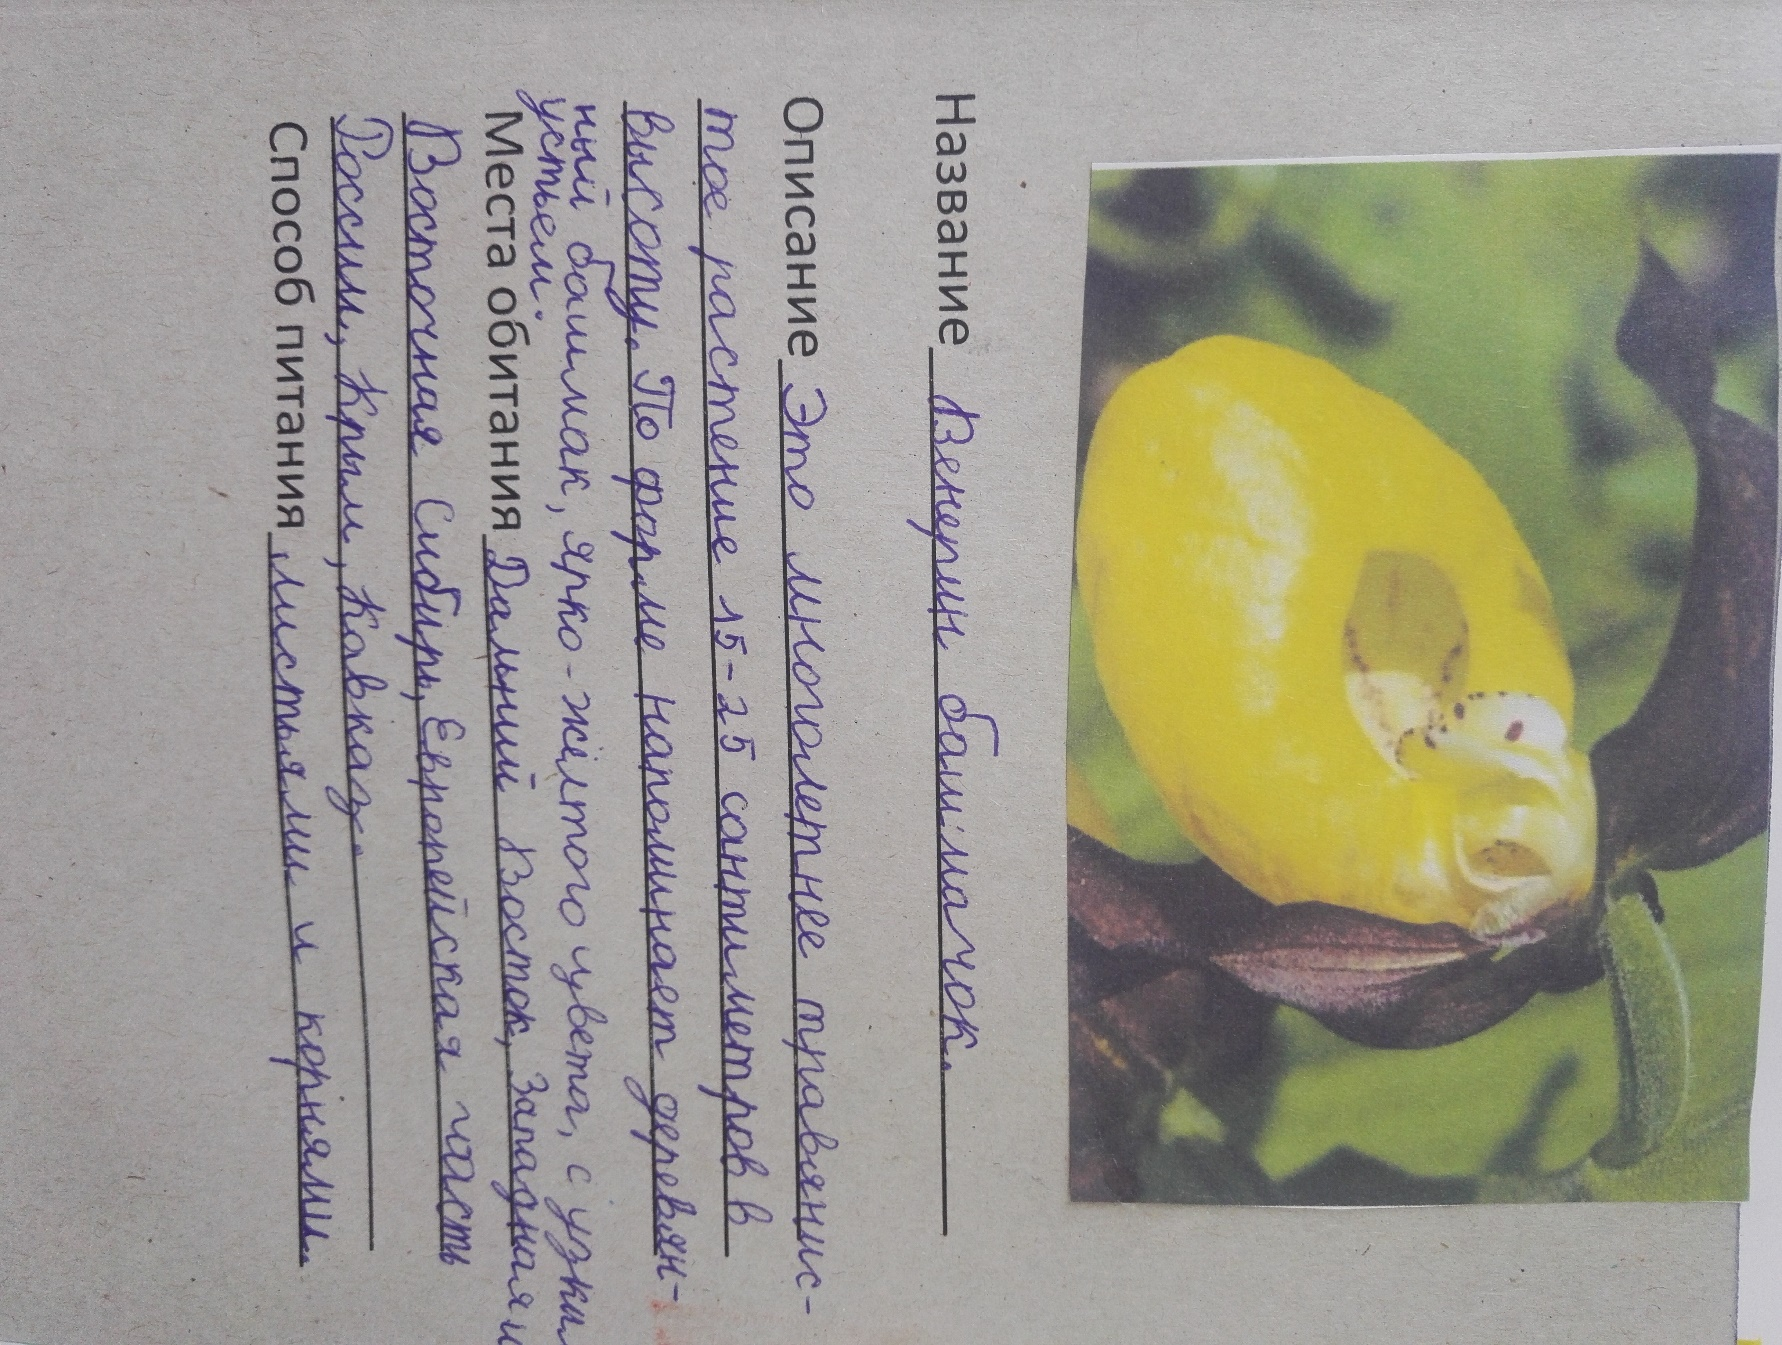 Название Венерин башмачок.
Описание Это многолетнее травянис-
тое растение 15-25 сантиметров в
высоту. По форме напоминает деревян-
ный башмак, ярко-жёлтого цвета, с узким
устьем.
Места обитания Дальний Восток, Западная и
Восточная Сибирь, Европейская часть
России, Крым, Кавказ.
Способ питания листьями и корнями.